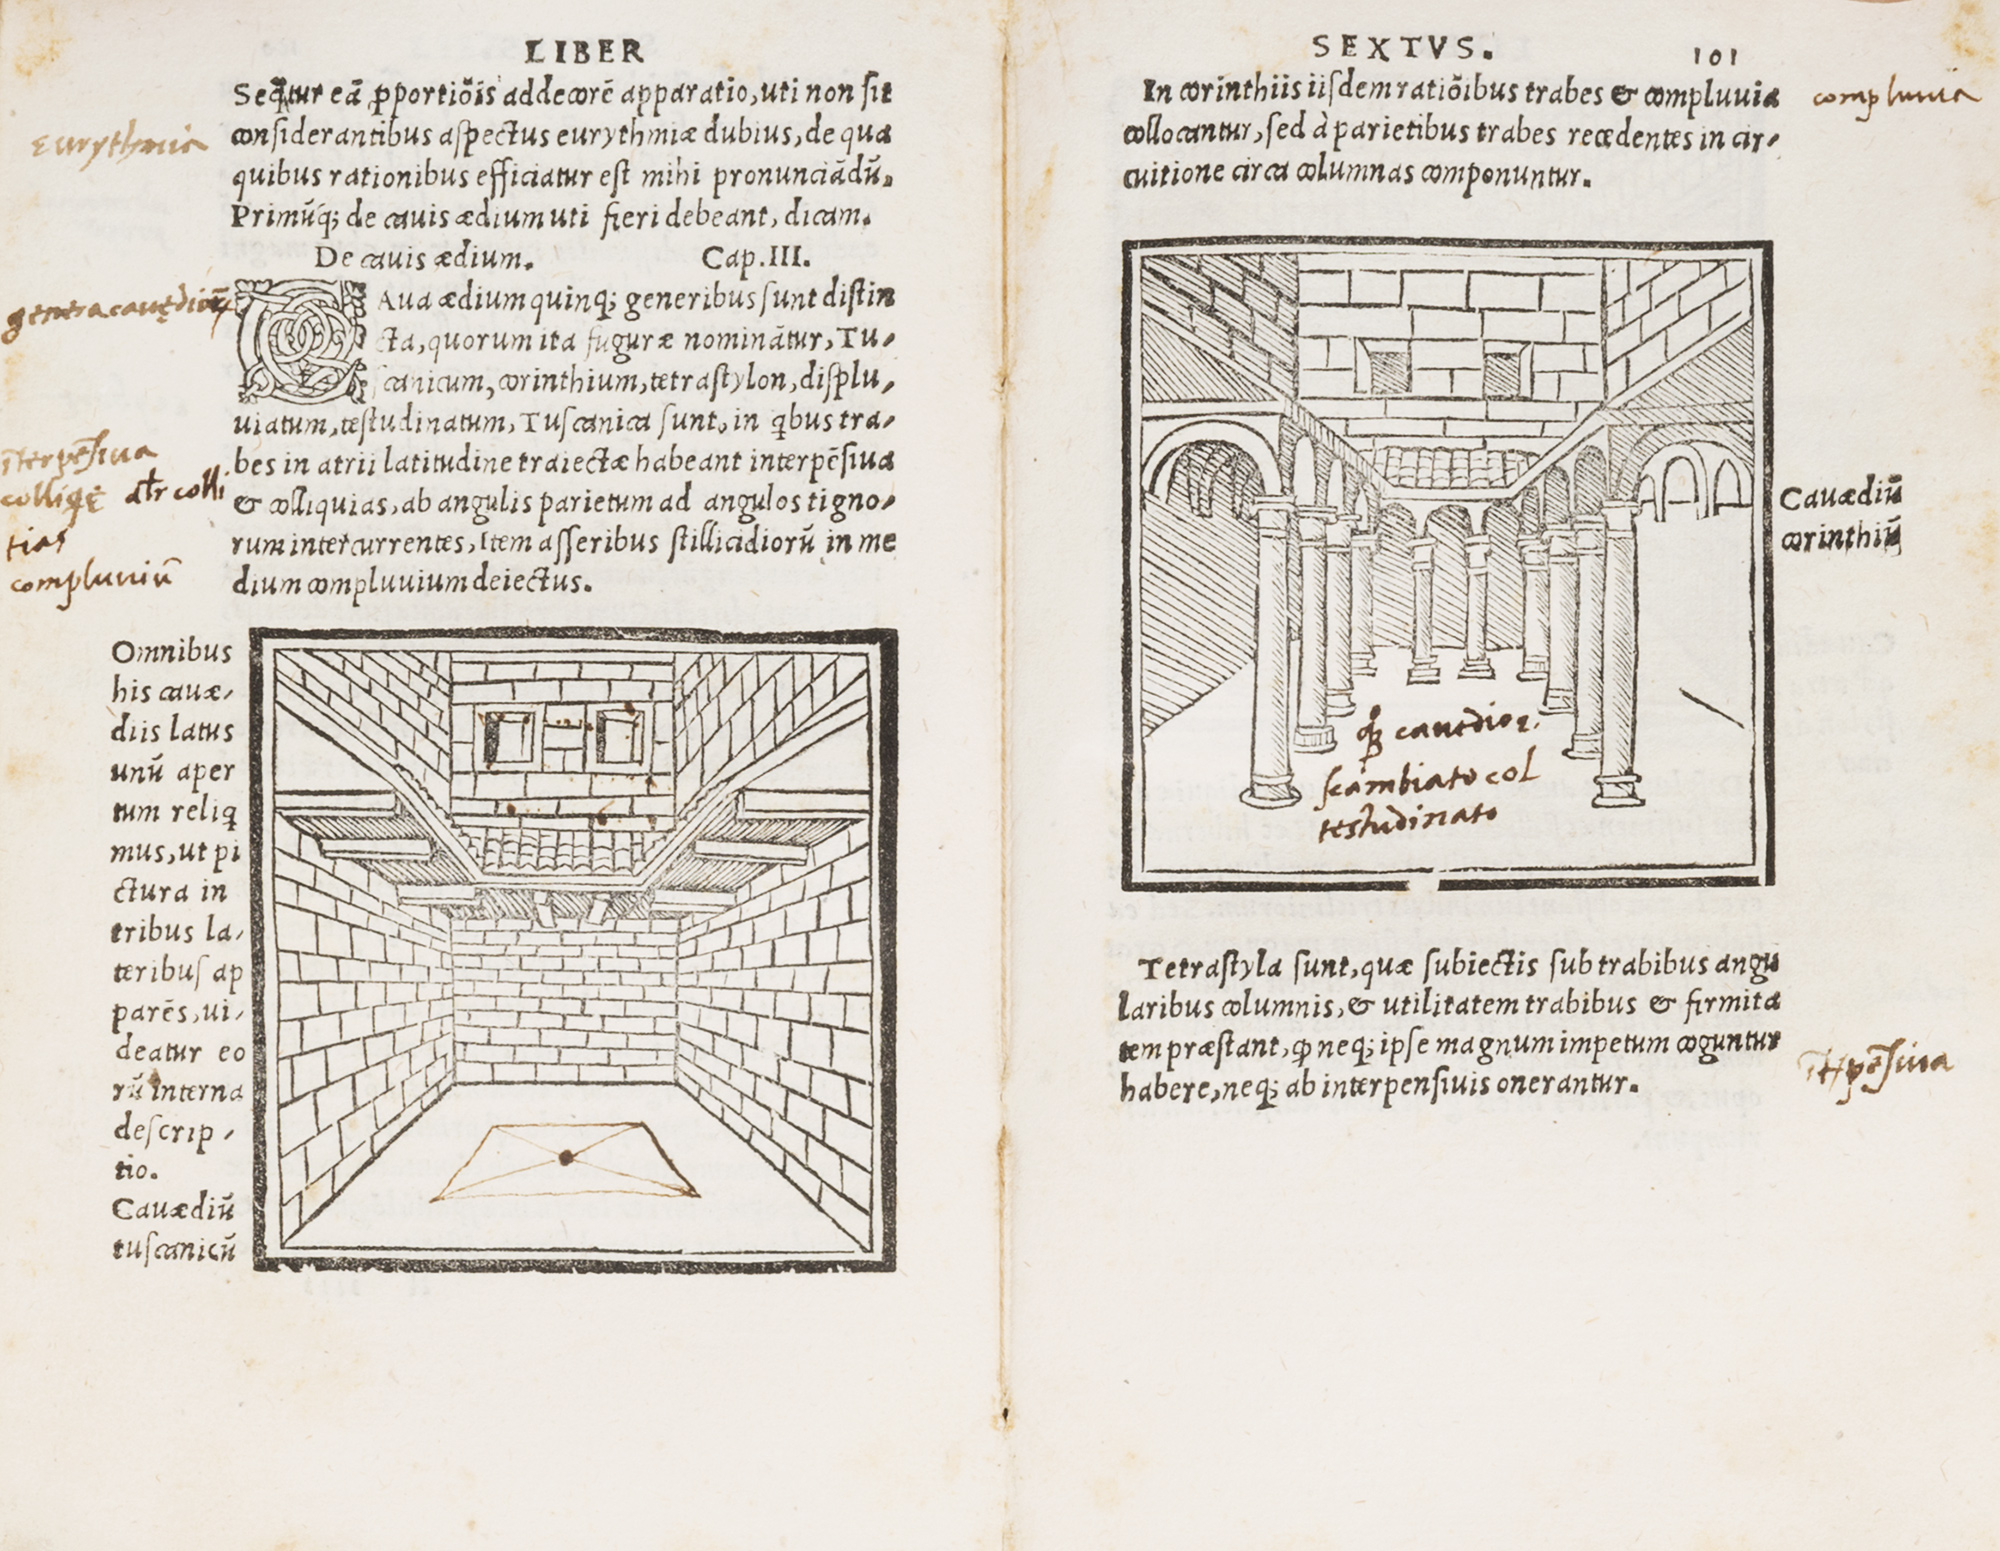 LIBER
Seq̃tur eã ꝓportiõis ad decorē apparatio, uti non ſit
eurythmia
conſiderantibus aſpectus eurythmiæ dubius, de qua
quibus rationibus efficiatur eſt mihi pronunciãdũ.
Primũq; de cauis ædium uti fieri debeant, dicam.
De cauis ædium. Cap. III.
genera cauędiorũ
CAua ædium quinq; generibus ſunt diſtin
cta, quorum ita fuguræ nominãtur, Tu-
ſcanicum, corinthium, tetraſtylon, diſplu-
uiatum, teſtudinatum, Tuſcanica ſunt, in q̃bus tra-
ĩterpēſiua
bes in atrii latitudine traiectæ habeant interpēſiua
colliq̃ę
& colliquias, ab angulis parietum ad angulos tigno-
tias
rum intercurrentes, Item aſſeribus ſtillicidiorũ in me
compluuiũ
dium compluuium deiectus.
Omnibus
his cauæ-
diis latus
unũ aper
tum reliq
mus, ut pi
ctura in
tribus la-
teribuſ ap
parēs, ui-
deatur eo
rũ interna
deſcrip-
tio.
Cauædiũ
tuſcanicũ
SEXTVS. 101
In corinthiis iiſdem ratiõibus trabes & compluuia
compluuia
collocantur, ſed à parietibus trabes recedentes in cir-
cuitione circa columnas componuntur.
Cauædiũ
corinthiũ
cauędior.
ſcambiato col
teſtudinato
Tetraſtyla ſunt, quæ ſubiectis ſub trabibus angu
laribus columnis, & utilitatem trabibus & firmita
tem præſtant, ꝙ neq; ipſe magnum impetum coguntur
ĩt̃pēſiua
habere, neq; ab interpenſiuis onerantur.